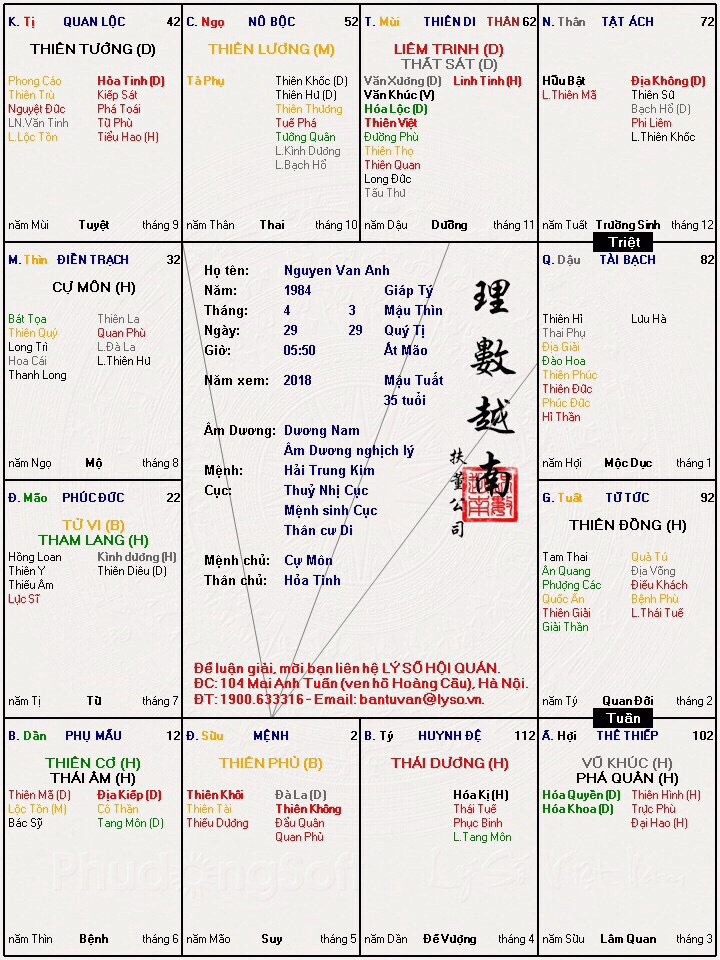 K. Tị QUAN LỘC 42
THIÊN TƯỚNG (D)
Phong Cáo Hỏa Tinh (D)
Thiên Trù Kiếp Sát
Nguyệt Đức Phá Toái
LN.Văn Tinh Tử Phù
L.Lộc Tồn Tiểu Hao (H)
năm Mùi Tuyệt tháng 9
C. Ngọ NÔ BỘC 52
THIÊN LƯƠNG (M)
Tả Phụ Thiên Khốc (D)
Thiên Hư (D)
Thiên Thương
Tuế Phá
Tướng Quân
L.Kình Dương
L.Bạch Hổ
năm Thân Thai tháng 10
T. Mùi THIÊN DI THÂN 62
LIÊM TRINH (D)
THẤT SÁT (D)
Văn Xương (D) Linh Tinh (H)
Văn Khúc (V)
Hóa Lộc (D)
Thiên Việt
Đường Phù
Thiên Thọ
Thiên Quan
Long Đức
Tấu Thư
năm Dậu Dưỡng tháng 11
N. Thân TẬT ÁCH 72
Hữu Bật Địa Không (D)
L.Thiên Mã Thiên Sứ
Bạch Hổ (D)
Phi Liêm
L.Thiên Khốc
năm Tuất Trường Sinh tháng 12
Triệt
M. Thìn ĐIỀN TRẠCH 32
CỰ MÔN (H)
Bát Tọa Thiên La
Thiên Quý Quan Phù
Long Trì L.Đà La
Hoa Cái L.Thiên Hư
Thanh Long
năm Ngọ Mộ tháng 8
Họ tên: Nguyen Van Anh
Năm: 1984 Giáp Tý
Tháng: 4 3 Mậu Thìn
Ngày: 29 29 Quý Tị
Giờ: 05:50 Ất Mão
Năm xem: 2018 Mậu Tuất
35 tuổi
Âm Dương: Dương Nam
Âm Dương nghịch lý
Mệnh: Hải Trung Kim
Cục: Thuỷ Nhị Cục
Mệnh sinh Cục
Thân cư Di
Mệnh chủ: Cự Môn
Thân chủ: Hỏa Tinh
理數越南
扶董公司
Để luận giải, mời bạn liên hệ LÝ SỐ HỘI QUÁN.
ĐC: 104 Mai Anh Tuấn (ven hồ Hoàng Cầu), Hà Nội.
ĐT: 1900.633316 - Email: bantuvan@lyso.vn.
Q. Dậu TÀI BẠCH 82
Thiên Hỉ Lưu Hà
Thai Phụ
Địa Giải
Đào Hoa
Thiên Phúc
Thiên Đức
Phúc Đức
Hỉ Thần
năm Hợi Mộc Dục tháng 1
Đ. Mão PHÚC ĐỨC 22
TỬ VI (B)
THAM LANG (H)
Hồng Loan Kình dương (H)
Thiên Y Thiên Diêu (D)
Thiếu Âm
Lực Sĩ
năm Tị Tử tháng 7
G. Tuất TỬ TỨC 92
THIÊN ĐỒNG (H)
Tam Thai Quả Tú
Ân Quang Địa Võng
Phượng Các Điếu Khách
Quốc Ấn Bệnh Phù
Thiên Giải L.Thái Tuế
Giải Thần
năm Tý Quan Đới tháng 2
Tuần
B. Dần PHỤ MẪU 12
THIÊN CƠ (H)
THÁI ÂM (H)
Thiên Mã (D) Địa Kiếp (D)
Lộc Tồn (M) Cô Thần
Bác Sỹ Tang Môn (D)
năm Thìn Bệnh tháng 6
Đ. Sửu MỆNH 2
THIÊN PHỦ (B)
Thiên Khôi Đà La (D)
Thiên Tài Thiên Không
Thiếu Dương Đẩu Quân
Quan Phủ
năm Mão Suy tháng 5
B. Tý HUYNH ĐỆ 112
THÁI DƯƠNG (H)
Hóa Kị (H)
Thái Tuế
Phục Binh
L.Tang Môn
năm Dần Đế Vượng tháng 4
Ấ. Hợi THÊ THIẾP 102
VŨ KHÚC (H)
PHÁ QUÂN (H)
Hóa Quyền (D) Thiên Hình (H)
Hóa Khoa (D) Trực Phù
Đại Hao (H)
năm Sửu Lâm Quan tháng 3